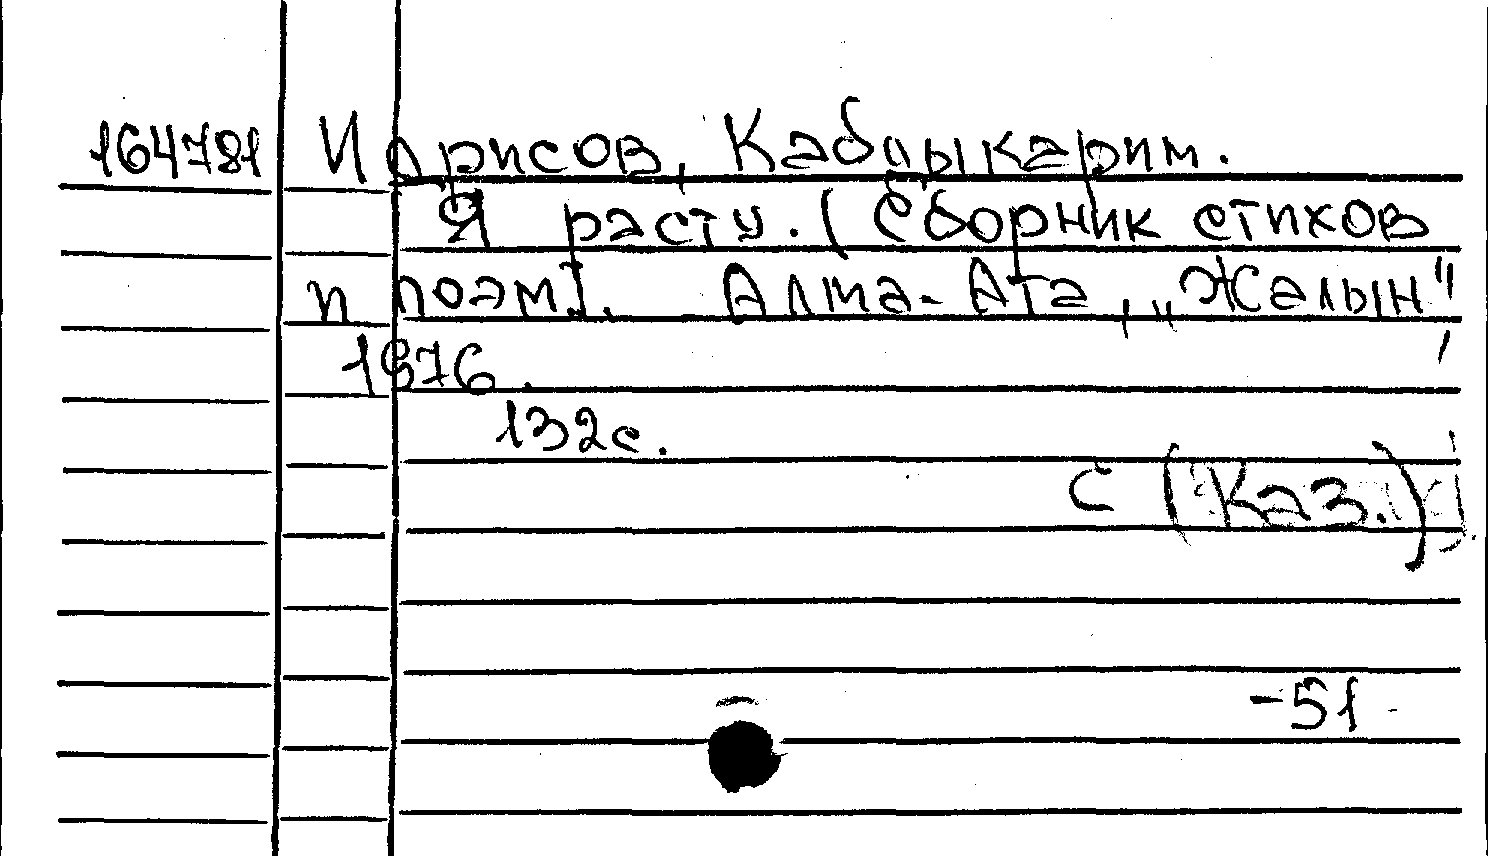 164781 Идрисов, Кабдыкарим.
Я расту. (Сборник стихов
и поэм). Алма-Ата, „Жалын",
1976.
132с.
С (Каз.)
-51